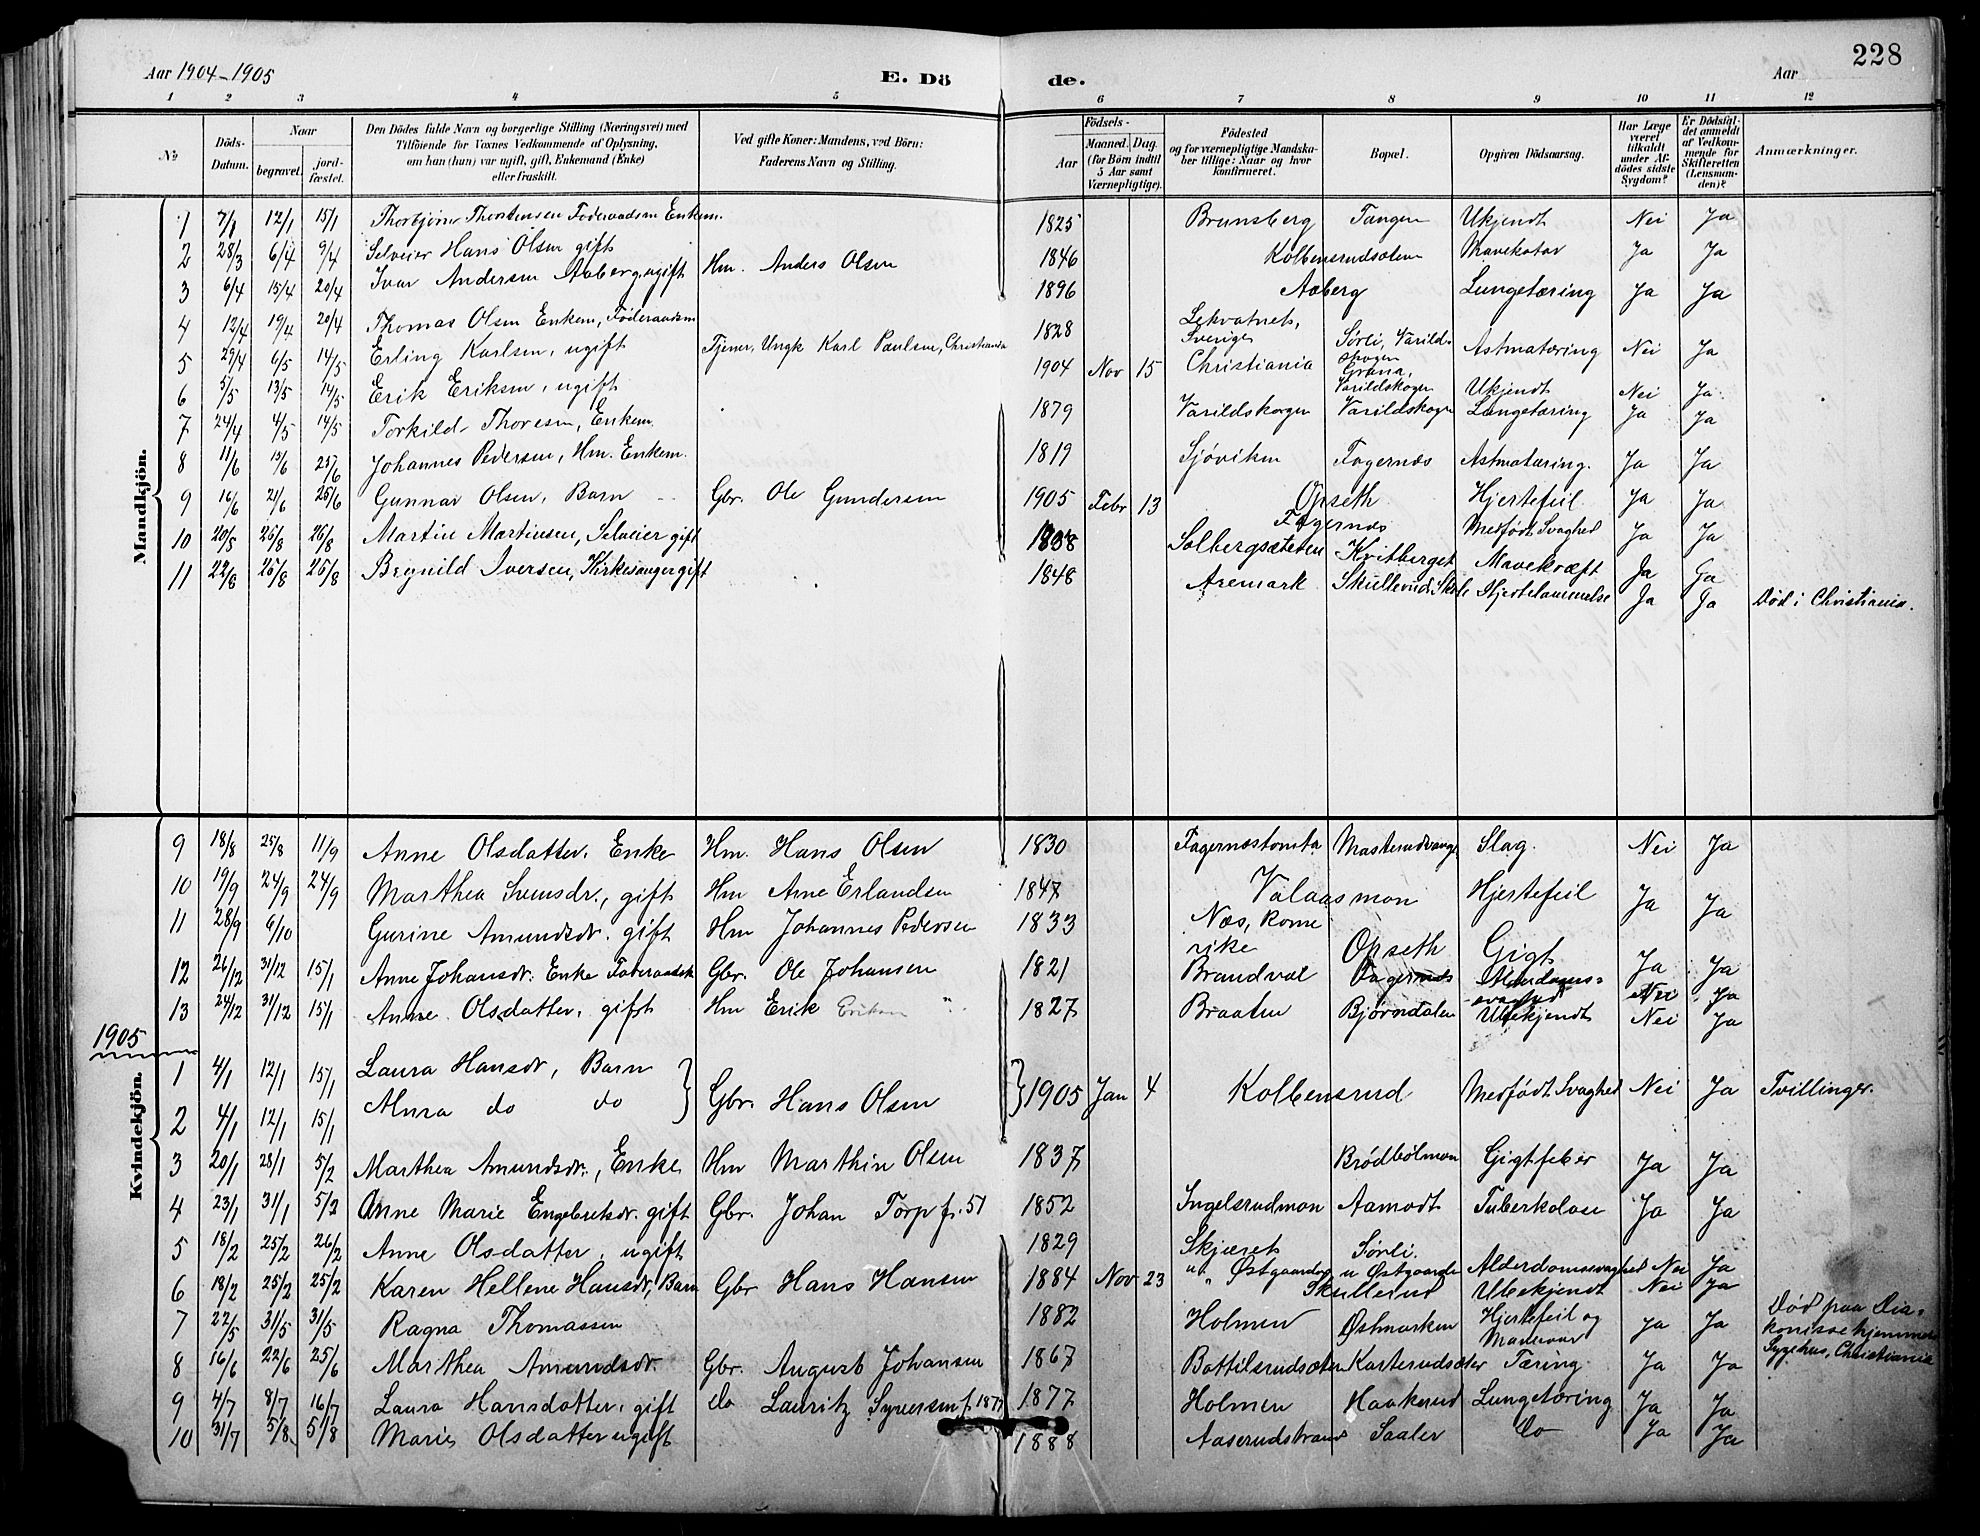 Aar 1904-1905 E. Döde. Aar 228
1 2 3 4 5 6 7 8 9 10 11 12
№ Döds-Datum. Naar begravet. jordfæstet. Den Dödes fulde Navn og borgerlige Stilling (Næringsvei) med Tilföiende for Voxnes Vedkommende af Oplysning, om han (hun) var ugift, gift, Enkemand (Enke) eller fraskilt. Ved gifte Koner: Mandens, ved Börn: Faderens Navn og Stilling. Födsels- Aar Maaned. Dag. (for Börn indtil 5 Aar samt Værnepligtige). Födested og for værnepligtige Mandskaber tillige: Naar og hvor konfirmeret. Bopæl. Opgiven Dödsaarsag. Har Læge været tilkaldt under Afdödes sidste Sygdom? Er Dödsfaldet anmeldt af Vedkommende for Skifteretten (Lensmanden)? Anmærkninger.
Mandkjön.
1 7/1 12/1 15/1 Thorbjörn Thorstensen Föderaadsm Enkem. 1825 Brunsberg Tangen Ukjendt Nei Ja
2 28/3 6/4 9/4 Selveier Hans Olsen gift 1846 Kolbensrudsæteren Mavekatar Ja Ja
3 6/4 15/4 20/4 Ivar Andersen Aaberg, ugift Hm. Anders Olsen 1896 Aaberg Lungetæring Ja Ja
4 12/4 19/4 20/4 Thomas Olsen Enkem, Föderaadsm 1828 Lekvatnet, Sverige Sørli, Varildskogen Astmatæring Nei Ja
5 29/4 6/5 14/5 Erling Karlsen, ugift Tjener, Ungk Karl Paulsen, Christiania 1904 Nov 15 Christiania Grana, Varildskogen Ukjendt Nei Ja
6 5/5 13/5 14/5 Erik Eriksen, ugift 1879 Varildskogen Varildskogen Lungetæring Ja Ja
7 24/4 4/5 14/5 Torkild Thoresen, Enkem. 1819 Sjöviken Fagernæs Astmatæring. Ja Ja
8 11/6 15/6 25/6 Johannes Pedersen, Hm. Enkem. Opseth Hjertefeil Ja Ja
9 16/6 21/6 25/6 Gunnar Olsen, Barn Gbr. Ole Gundersen 1905 Febr 13 Fagernæs Medfödt Svaghed Ja Ja
10 20/8 26/8 26/8 Martin Martinsen, Selveier gift 1838 Solbergsæteren Kvitberget Mavekræft Ja Ja
11 22/8 25/8 26/8 Brynild Iversen, Kirkesanger gift 1848 Aremark Skullerud Skole Hjertelammelse Ja Ja Död i Christiania.
Kvindekjön.
9 18/8 25/8 11/9 Anne Olsdatter, Enke Hm. Hans Olsen 1830 Fagernæstomta Masterudvangen Slag. Nei Ja
10 19/9 24/9 24/9 Marthea Svensdr., gift Hm Arne Erlandsen 1847 Valaasmon Hjertefeil Ja Ja
11 28/9 6/10 Gurine Amundsdr. gift Hm Johannes Pedersen 1833 Næs, Romerike Opseth Gigt Ja Ja
12 26/12 31/12 15/1 Anne Johansdr. Enke Föderaadsk Gbr. Ole Johansen 1821 Brandval Fagernæs Alderdomssvaghed Nei Ja
13 24/12 31/12 15/1 Anne Olsdatter, gift Hm Erik Eriksen 1827 Braaten Bjørndalen Ubekjendt Nei Ja
1905
1 4/1 12/1 15/1 Laura Hansdr, Barn
2 4/1 12/1 15/1 Alma do do Gbr. Hans Olsen 1905 Jan 4 Kolbensrud Medfödt Svaghed Nei Ja Tvillinger.
3 20/1 28/1 5/2 Marthea Amundsdr., Enke Hm Marthin Olsen 1837 Brødbølmon Gigtfeber Ja Ja
4 23/1 31/1 5/2 Anne Marie Engebretsdr. gift Gbr. Johan Torp f. 51 1852 Ingelsrudmon Aamodt Tuberkolose Ja Ja
5 18/2 25/2 26/2 Anne Olsdatter, ugift 1829 Skjæret u. Østgaarden Sørli u Østgaarden Alderdomssvaghed Nei Ja
6 18/2 25/2 25/2 Karen Hellene Hansdr, Barn Gbr Hans Hansen 1884 Nov 23 Skullerud Ubekjendt Nei Ja
7 22/5 31/5 31/5 Ragna Thomassen 1882 Holmen Østmarken Hjertefeil og Ja Ja Död paa Diakonissehjemmets Sygehus, Christiania
8 16/6 22/6 25/6 Marthea Amundsdr. Gbr. August Johansen 1867 Bottilsrudsæter Karterudsæter Tæring. Ja Ja
9 4/7 8/7 16/7 Laura Hansdatter, gift do Lauritz Syversen f. 1877 1877 Holmen Haakerud Lungetæring Ja Ja
10 31/7 5/8 5/8 Marie Olsdatter ugift 1888 Aaserudstrand Saaler Do Ja Ja